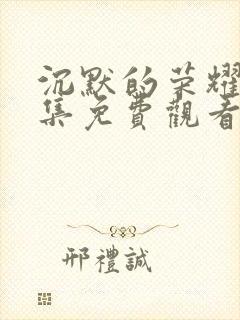 沉默的荣耀
集免費觀看
邢禮誠